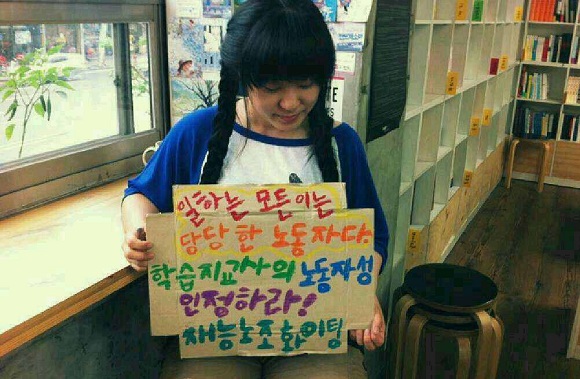 일하는 모든 이는
당당한 노동자다.
학습지교사의 노동자성
인정하라!
재능노조 화이팅